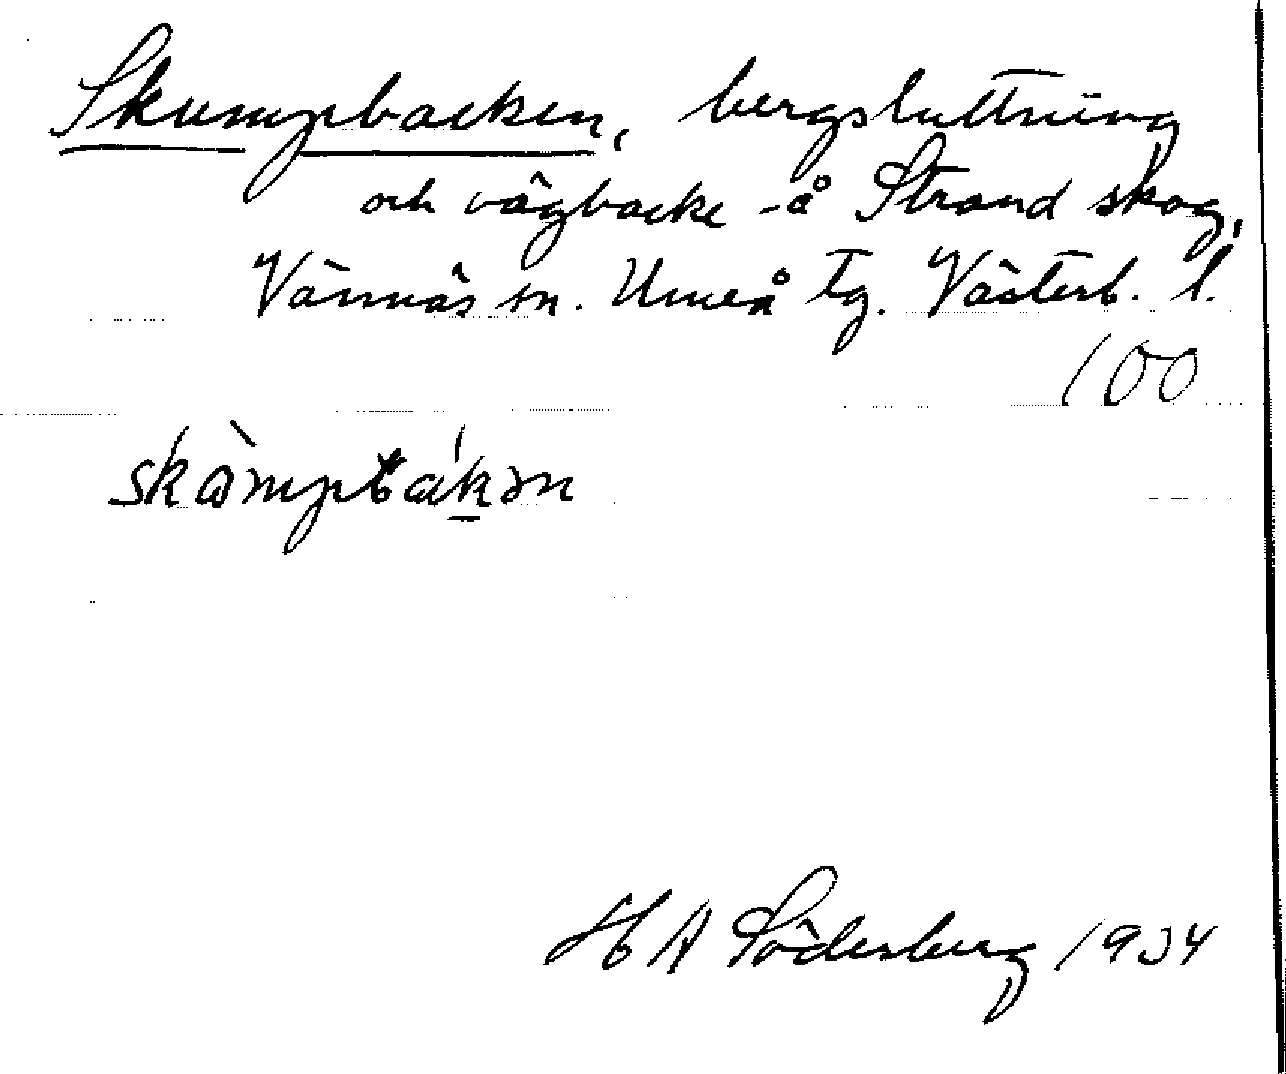 Skumpbacken, bergsluttning
och vägbacke å Strand skog,
Vännäs sn. Umeå tg. Västerb. l.
100
H A Söderberg 1934